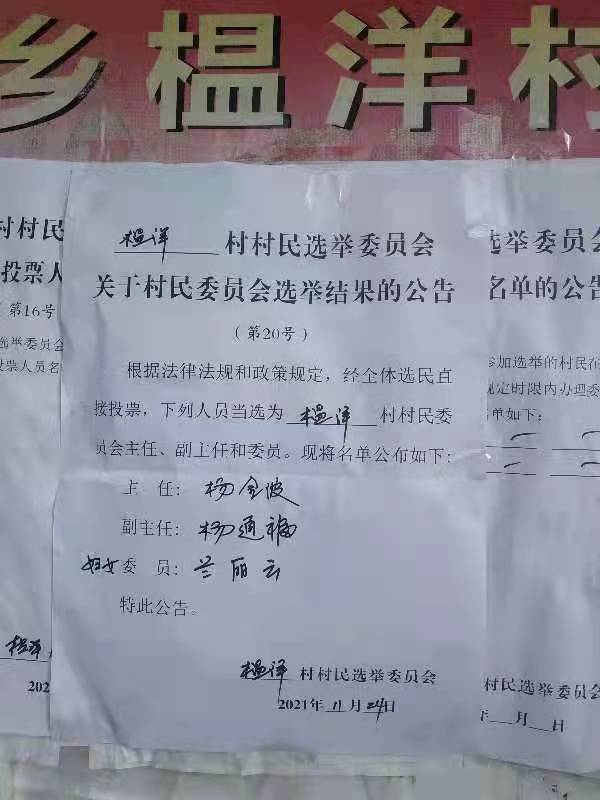 乡榅洋村
榅洋村村民选举委员会
关于村民委员会选举结果的公告
(第20号)
根据法律法规和政策规定，经全体选民直
接投票，下列人员当选为榅洋村村民委
员会主任、副主任和委员。现将名单公布如下:
主 任: 杨金波
副主任: 杨通福
妇女委 员: 兰丽云
特此公告。
榅洋村村民选举委员会
2021年11月24日
村村民
投票人
(第16号
选举委员会
投票人员名
榅洋
202
选举委员会
名单的公告
参加选举的村民在
规定时限内办理委
名单如下:
村民选举委员会
年 月 日